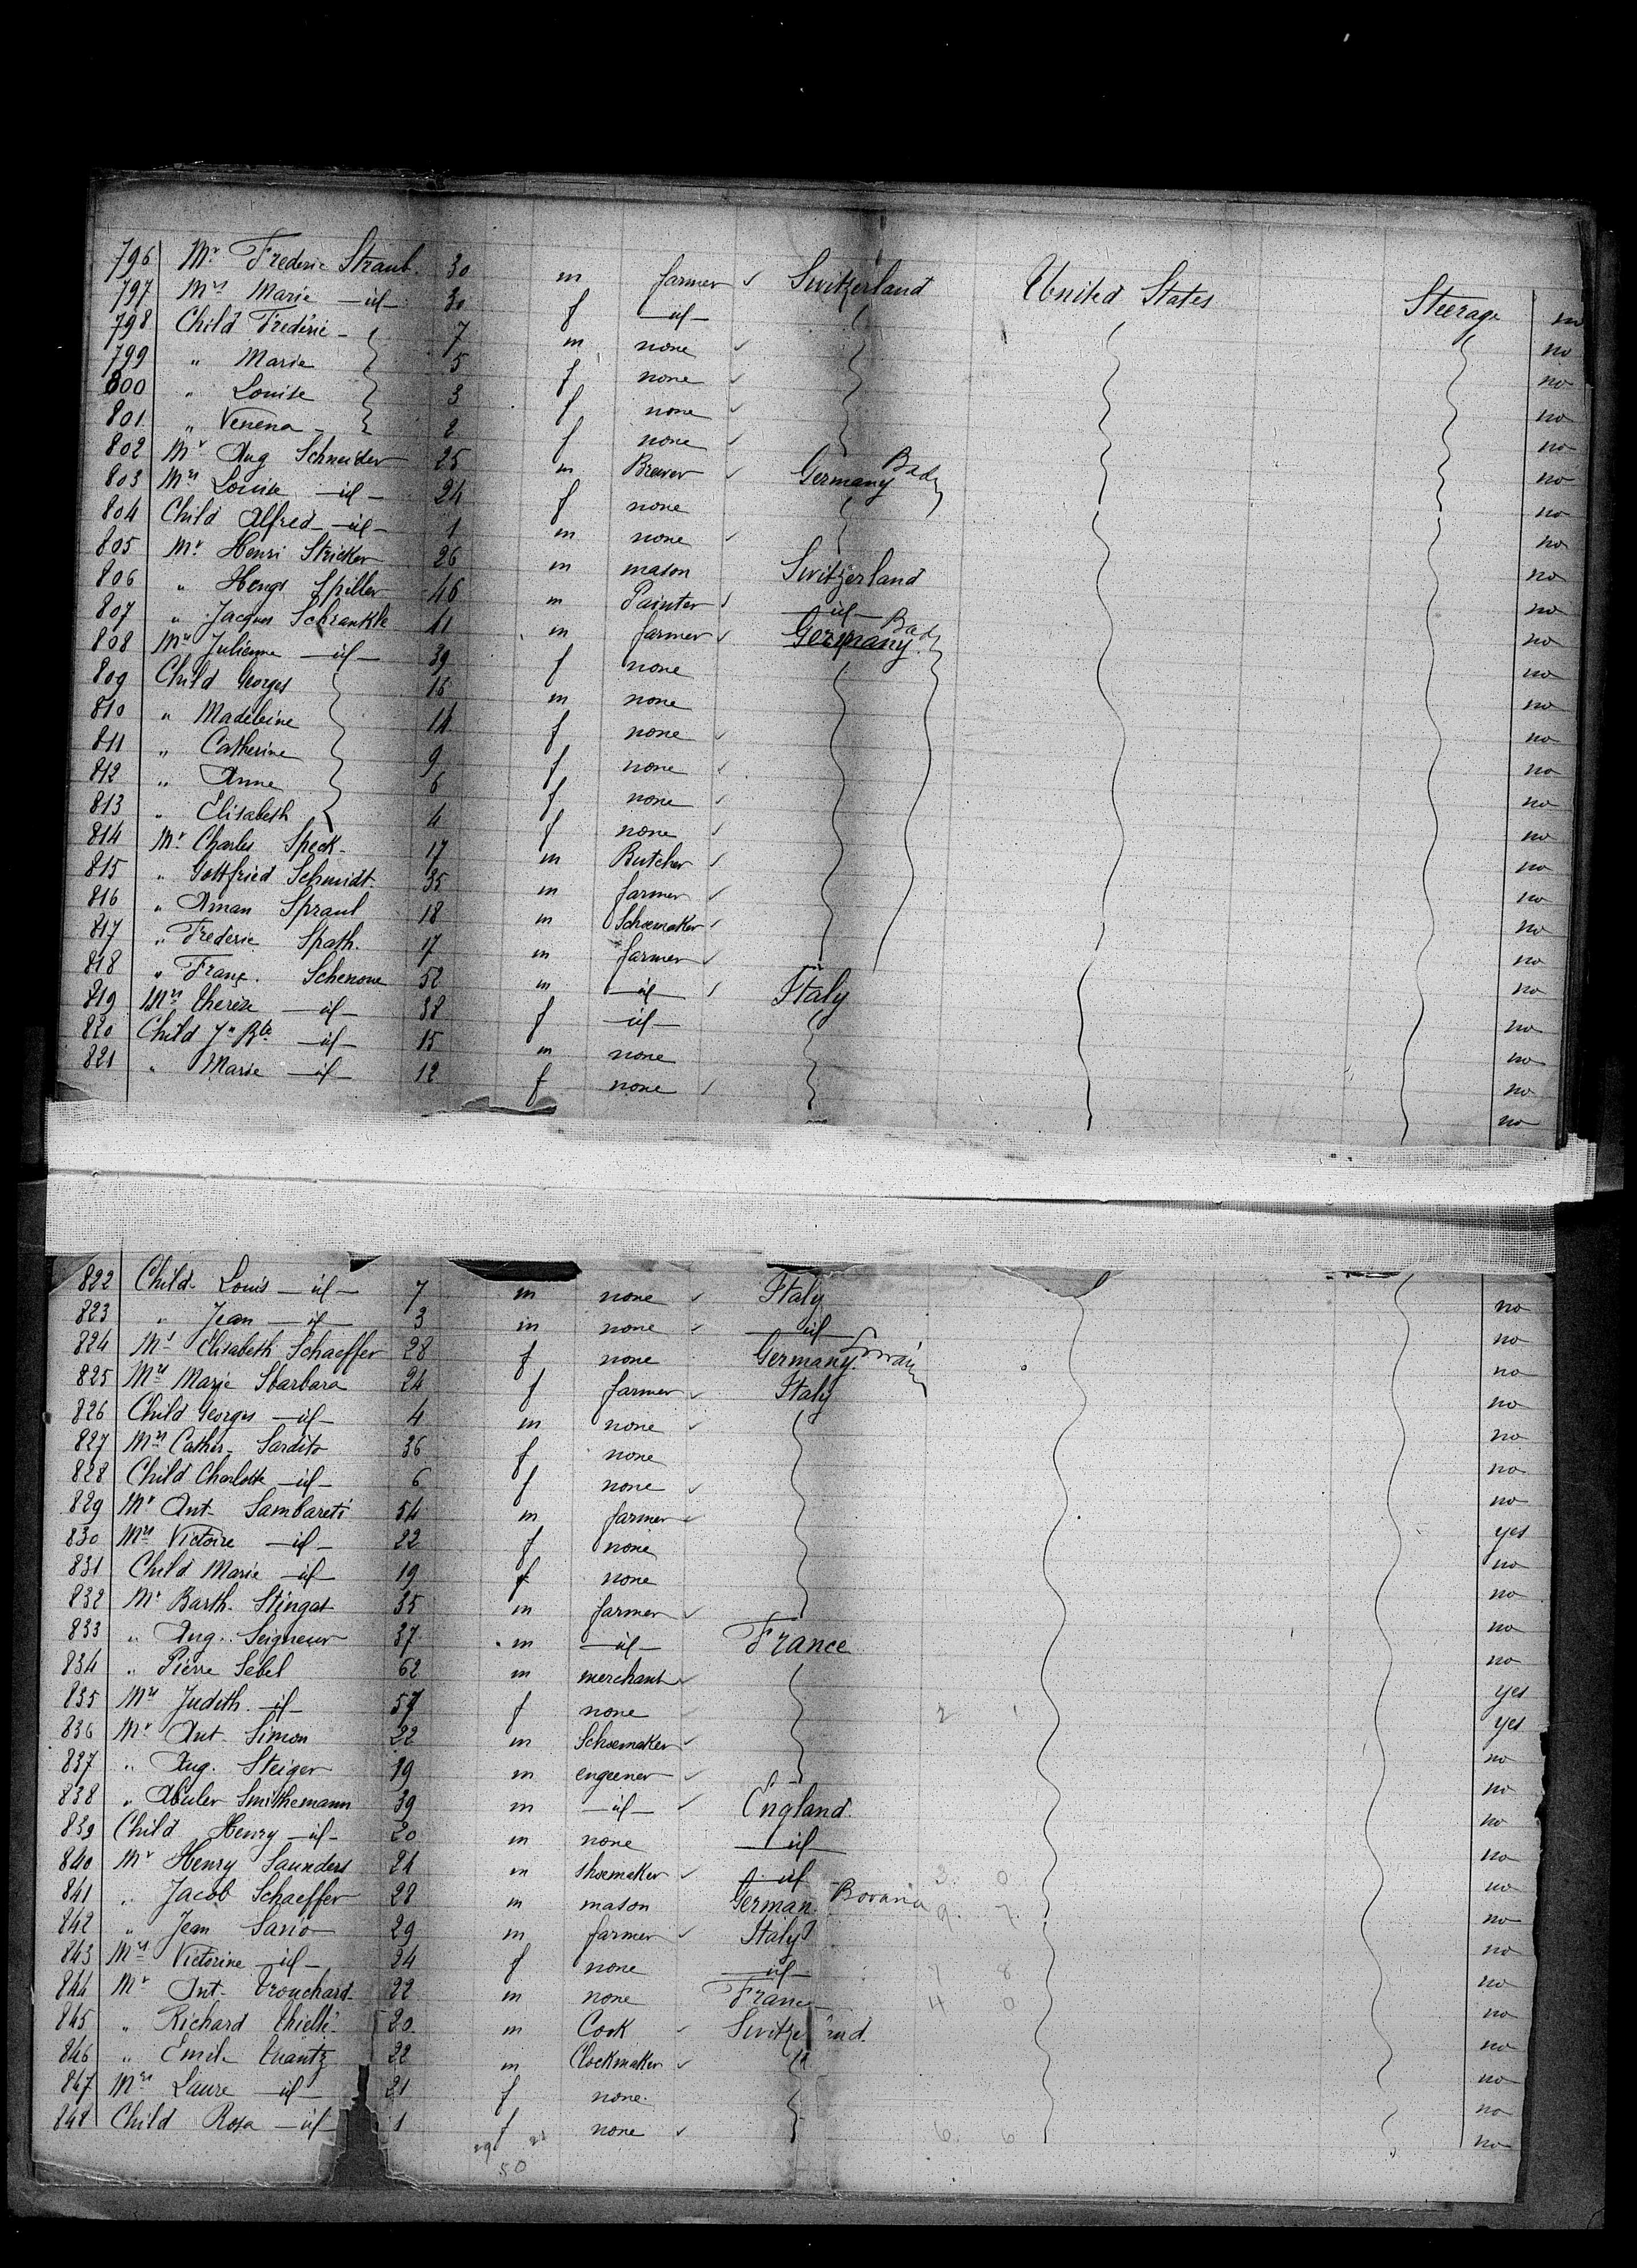 796 Mr Frederic Straub 30 m farmer Switzerland United States Steerage no
797 Mrs Marie — id — 30 f — id — no
798 Child Frederic 7 m none no
799 " Marie 5 f none no
800 " Louise 3 f none no
801 " Verena 2 f none no
802 Mr Aug Schneider 25 m Brewer Germany Bad no
803 Mrs Louise — id — 24 f none no
804 Child Alfred — id — 1 m none no
805 Mr Henri Stricker 26 m mason Switzerland no
806 " Spiller 46 m Painter — id — no
807 " Jacques Schrankle 41 m farmer Germany Bad no
808 Mrs Julienne — id — 39 f none no
809 Child Georges 16 m none no
810 " Madeleine 14 f none no
811 " Catherine 9 f none no
812 " Anne 6 f none no
813 " Elisabeth 4 f none no
814 Mr Charles Speck 17 m Butcher no
815 " Gottfried Schmidt 35 m farmer no
816 " Aman Spraul 18 m Schoemaker no
817 " Frederic Spath 17 m farmer no
818 " Franç. Schenone 52 m — id — Italy no
819 Mrs Therese — id — 38 f — id — no
820 Child Jn Bte — id — 15 m none no
821 " Marie — id — 12 f none no
822 Child Louis — id — 7 m none Italy no
823 " Jean — id — 3 m none — id — no
824 Ms Elisabeth Schaeffer 28 f none Germany no
825 Mrs Marie Sbarbara 24 f farmer Italy no
826 Child Georges — id — 4 m none no
827 Mrs Cather. Sardito 36 f none no
828 Child Charlotte — id — 6 f none no
829 Mr Ant. Sambareti 54 m farmer yes
830 Mrs Victoire — id — 22 f none no
831 Child Marie — id — 19 f none no
832 Mr Barth. Stingat 35 m farmer no
833 " Aug. Seigneur 37 m — id — France no
834 " Pierre Sebel 62 m merchant yes
835 Mrs Judith — id — 57 f none yes
836 Mr Ant. Simon 22 m Schoemaker no
837 " Aug. Steiger 19 m engeener no
838 " Smithemann 39 m — id — England no
839 Child Henry — id — 20 m none — id — no
840 Mr Henry Saunders 24 m shoemaker — id — no
841 " Jacob Schaeffer 28 m mason German Bovaria no
842 " Jean Sario 29 m farmer Italy no
843 Mrs Victorine — id — 24 f none — id — no
844 Mr Ant. Trouchard 22 m none France no
845 " Richard 20 m Cook Switze nd no
846 " Emile 22 m Clockmaker no
847 Mrs Laure — id — 21 f none no
848 Child Rosa — id — 1 f none no
29 21
50